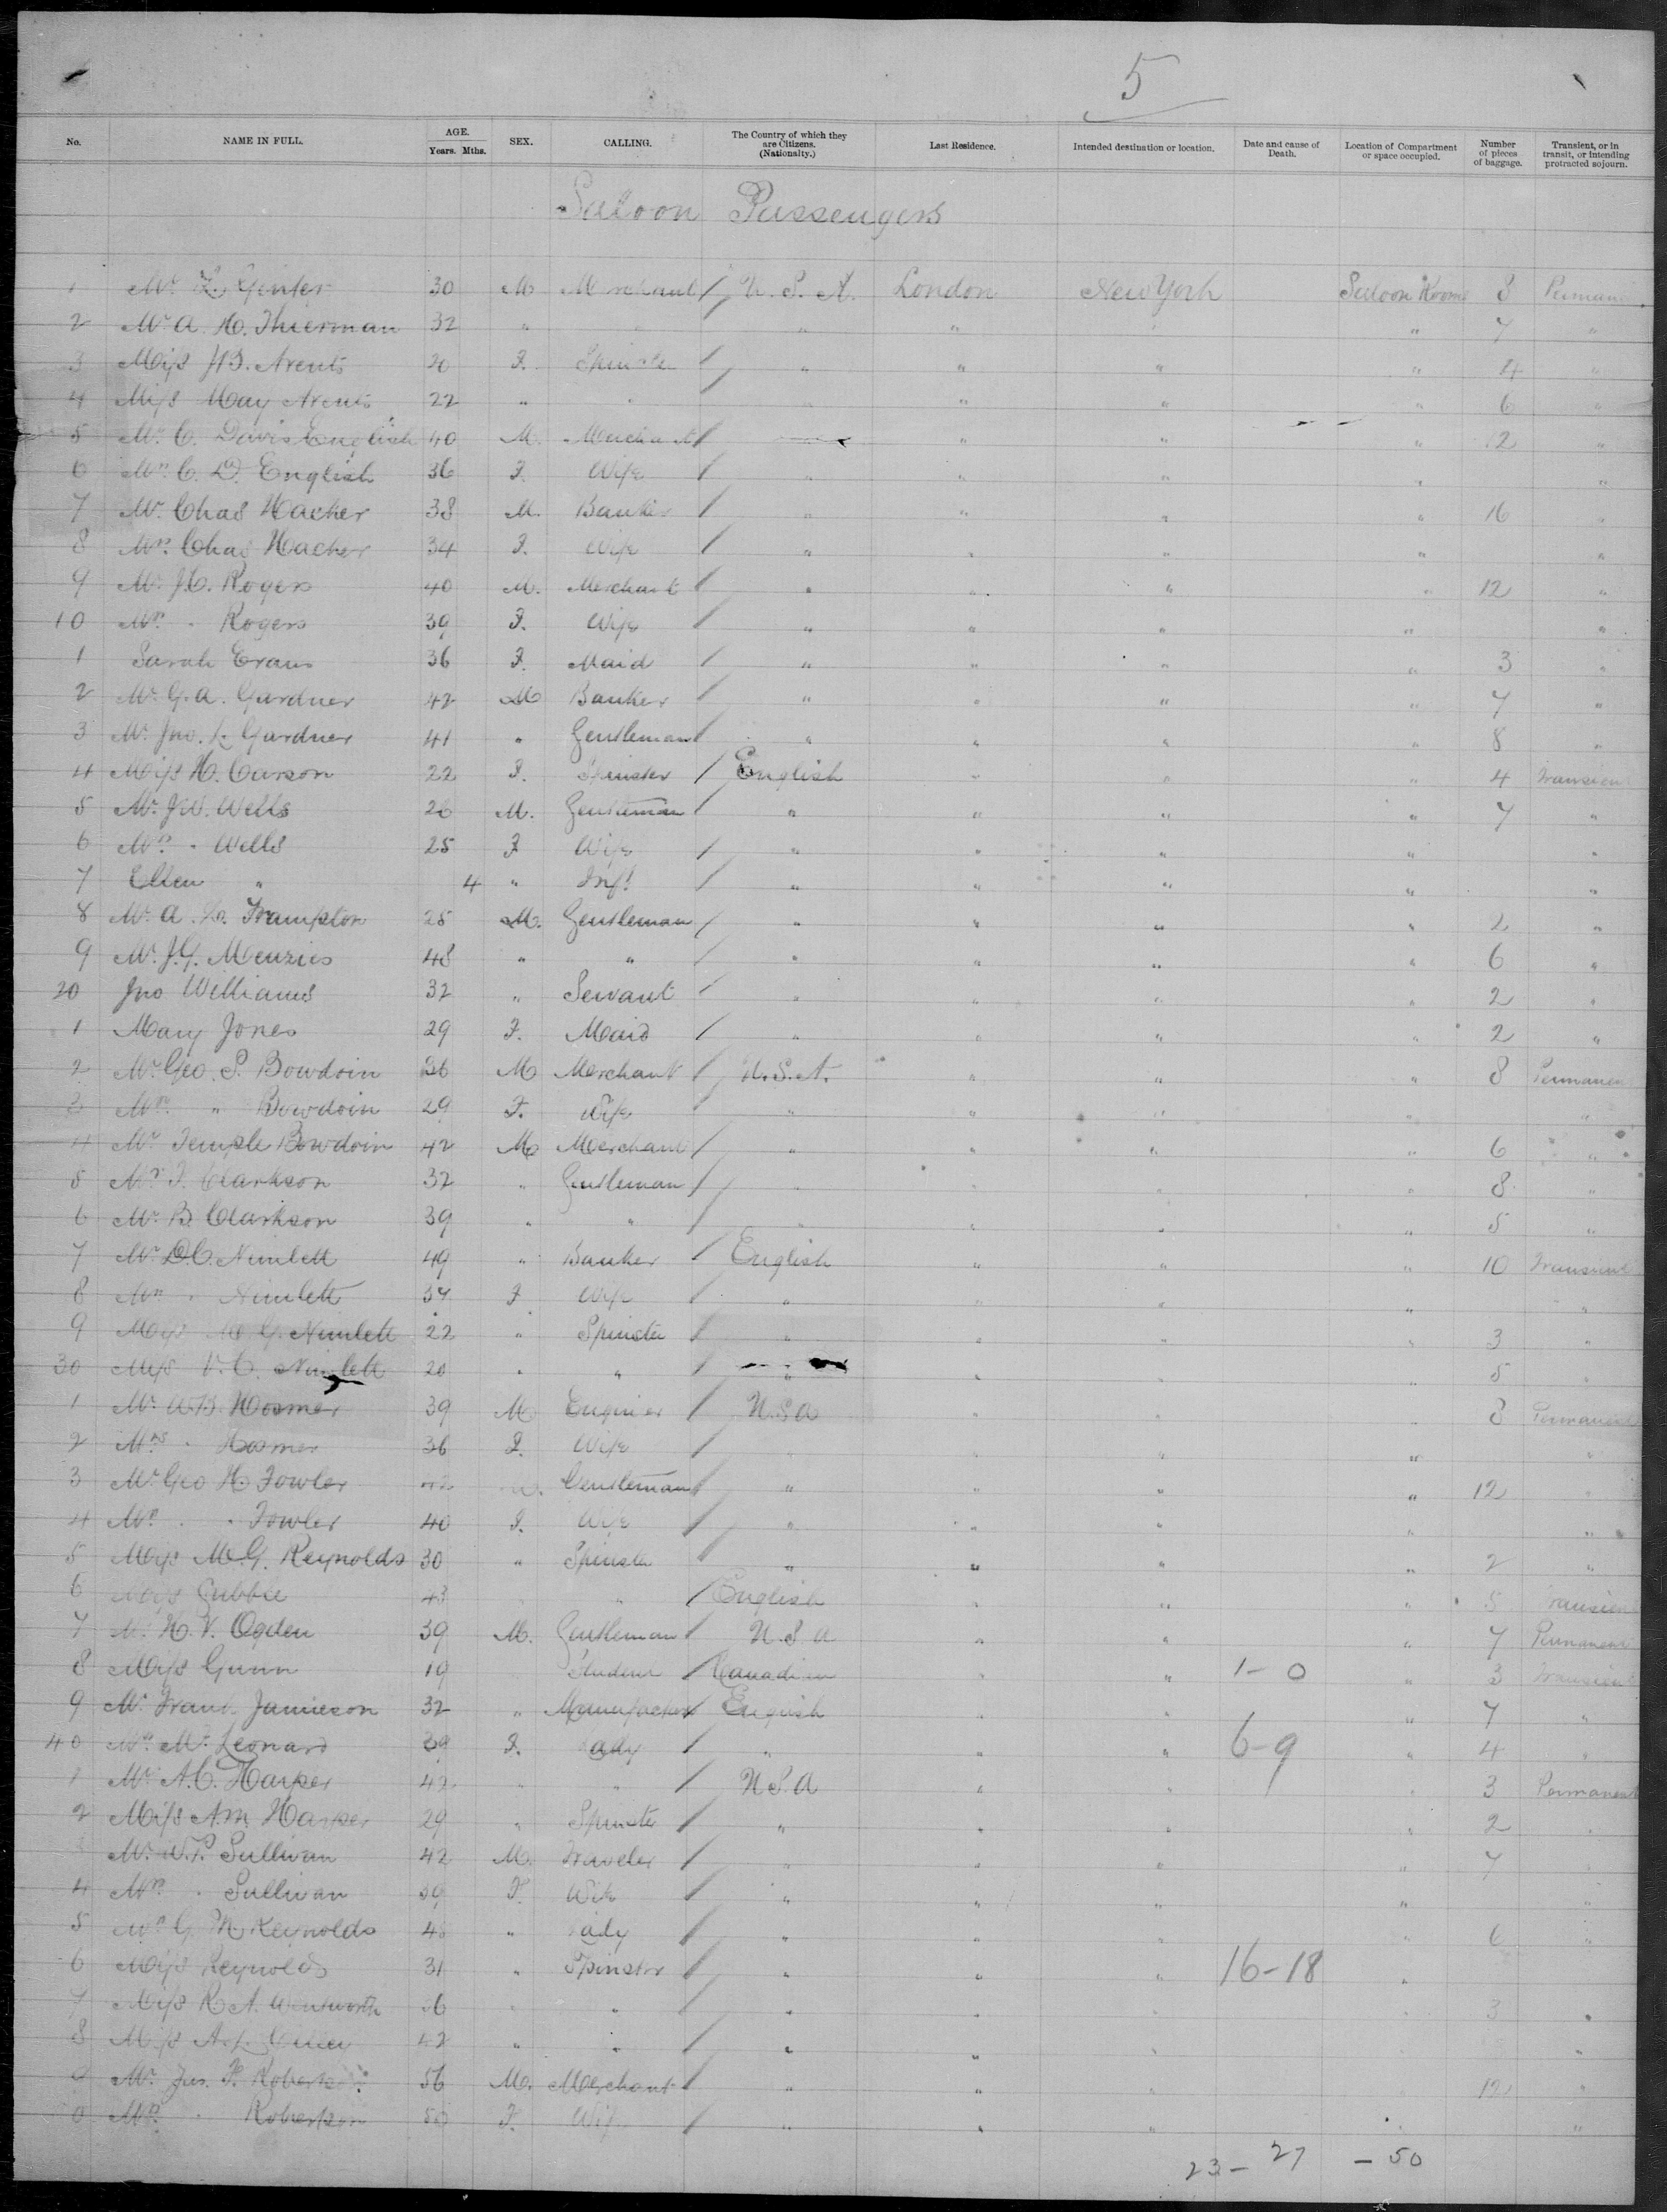 5
No. NAME IN FULL. AGE. Years. Mths. SEX. CALLING. The Country of which they are Citizens. (Nationality.) Last Residence. Intended destination or location. Date and cause of Death. Location of Compartment or space occupied. Number of pieces of baggage. Transient, or in transit, or intending protracted sojourn.
Saloon Passengers
1 Mr. L. Ginter 30 M Merchant / U.S.A. London New York Saloon Room 8
2 Mr A. H. Thierman 32 " " " " 7 "
3 Miss J.B. Arents 20 F. / " " " " 4 "
4 Miss May Arents 22 " " / " " " " 6 "
5 Mr. C. Davis English 40 M. Merchant / " " " 12 "
6 Mrs C. D. English 36 F. Wife / " " " " "
7 Mr. Chas Hacher 38 M. Banker / " " " " 16 "
8 Mrs. Chas Hacher 34 F. Wife / " " " " "
9 Mr. J.C. Rogers 40 M. Merchant / " " " " 12 "
10 Mrs " Rogers 39 F. Wife / " " " " "
1 Sarah Evans 36 F. Maid / " " " " 3 "
2 Mr. G. A. Gardner 42 M Banker / " " " " 7 "
3 Mr. Jno. L. Gardner 41 " Gentleman / " " " " 8 "
4 Miss H. Carson 22 F. Spinster / English " " " 4 Transient
5 Mr. J.W. Wells 26 M. Gentleman / " " " " 7 "
6 Mrs. " Wells 25 F Wife / " " " " "
7 Ellen " 4 " Inft / " " " " "
8 Mr. A. Frampton 25 M. Gentleman / " " " " 2 "
9 Mr. J.G. Menzies 48 " " / " " " " 6 "
20 Jno Williams 32 " Servant / " " " " 2 "
1 Mary Jones 29 F. Maid / " " " " 2 "
2 Mr. Geo. S. Bowdoin 36 M Merchant / U.S.A. " " " 8 Permanen
3 Mrs. " Bowdoin 29 F. Wife / " " " " "
4 Mr Temple Bowdoin 42 M Merchant / " " " " 6 "
5 Mr. F. Clarkson 32 " Gentleman / " " " " 8 "
6 Mr. B. Clarkson 39 " " / " " " " 5 "
7 Mr D.C. Nimlett 49 " Banker / English " " " 10 Transient
8 Mrs " Nimlett 34 F Wife / " " " " "
9 Miss G. Nimlett 22 " Spinster / " " " " 3 "
30 Miss C. Nimlett 20 " " / " " " " 5 "
1 Mr. W.B. Hosmer 39 M Engineer / U.S.A " " " 8 Permanent
2 Mrs " Hosmer 36 F. Wife / " " " " "
3 Mr Geo H. Fowler 42 Gentleman / " " " " 12 "
4 Mrs " " Fowler 40 F. Wife / " " " " "
5 Miss M.G. Reynolds 30 " Spinster / " " " " 2 "
6 Miss 43 " / English " " " 5
7 Mr. H. V. Ogden 39 M. Gentleman / U.S.A " " " 7 Permanent
8 Miss Gunn 19 Student / Canadian " " 1-0 " 3 Transient
9 Mr. Frank Jamieson 32 " / English " " " 7 "
40 Leonard 39 F. Lady / " " " 6-9 " 4 "
1 A.C. Harper 42 " " / U.S.A " " " 3 Permanent
2 Miss A.M. Harper 29 " Spinster / " " " " 2 "
3 Mr. W.P. Sullivan 42 M. Traveler / " " " " 7 "
4 Mrs " Sullivan 39 F. Wife / " " " " "
5 Mrs G. Reynolds " Lady / " " " " 6 "
6 Miss Reynolds 31 " Spinster / " " " 16-18 "
7 Miss R.A. Wentworth " " / " " " " 3 "
8 Miss 42 " " / " " " "
9 Mr. Robertson 56 M. Merchant / " " " 12 "
0 Mrs " Robertson F. Wife / " " " " "
23- 27 - 50